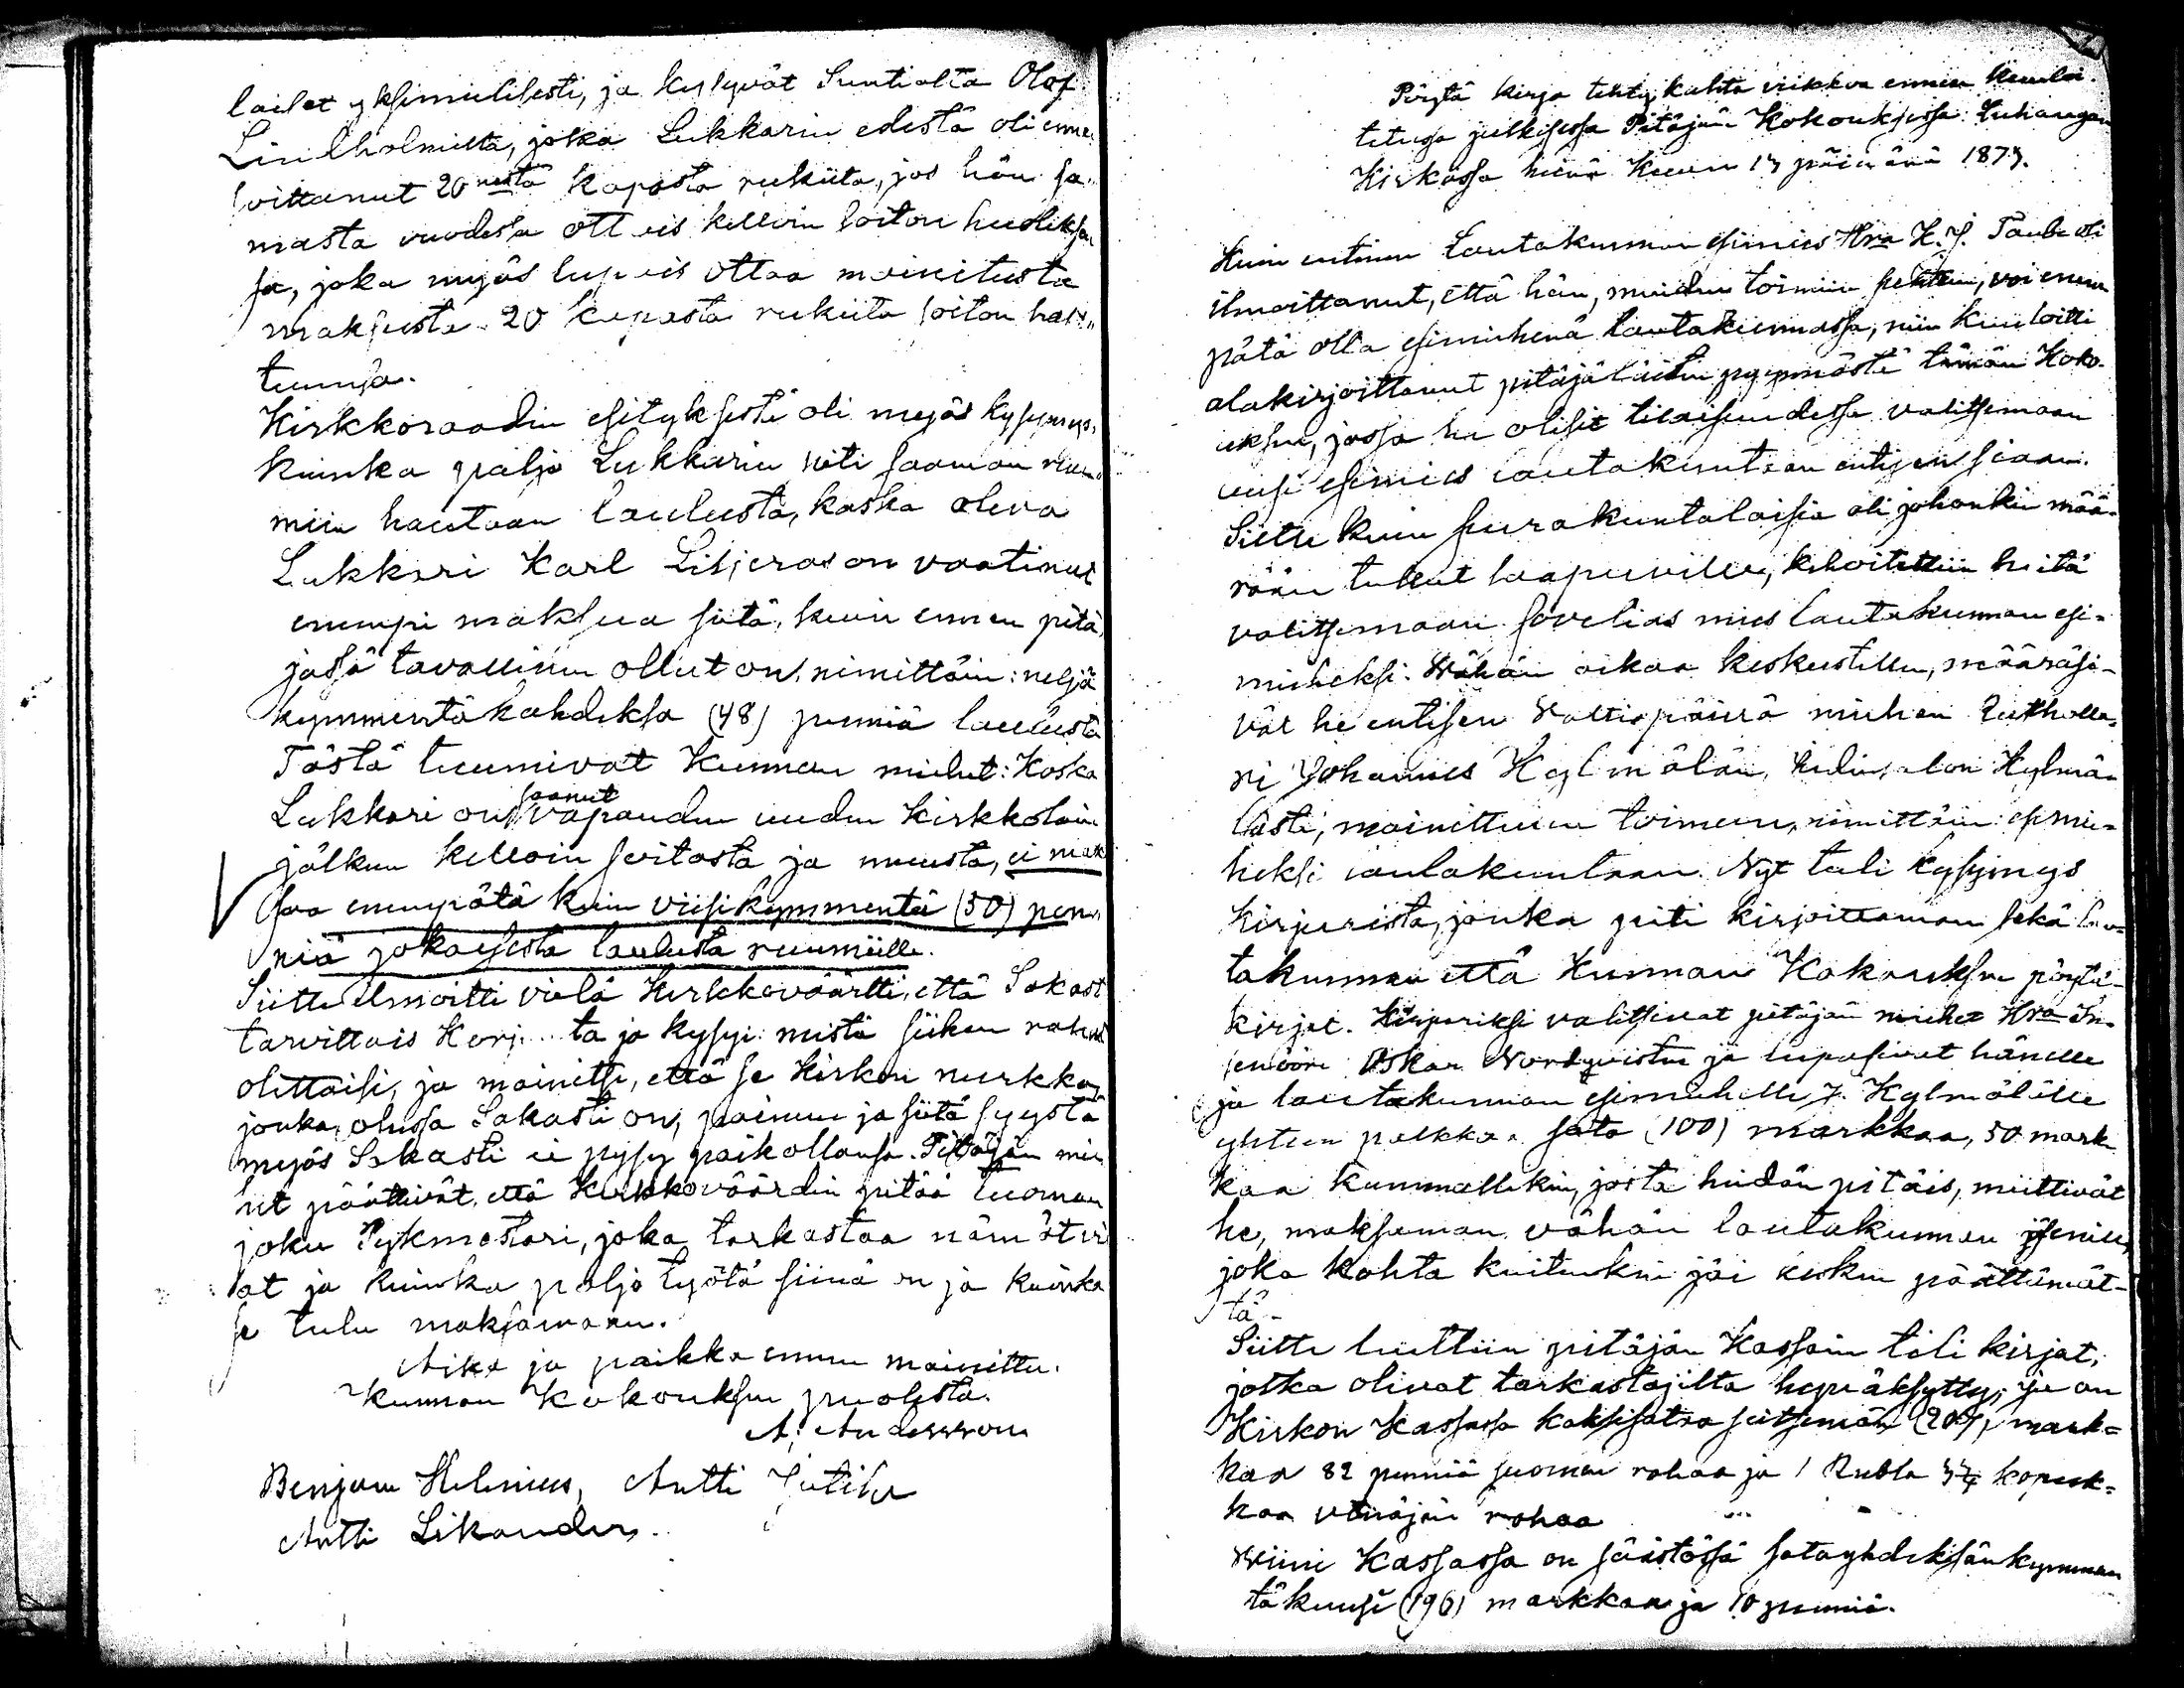 laiset yksimielisesti, ja kysyvät Suntiolta Olof
Lindholmilta, joka Lukkarin edestä oli ennen
soittanut 20nestä kapasta rukiita, jos hän sa-
masta vuodessa ott eis kelloin soiton huoleksen
sa, joka myös lup eis ottaa mainitusta
maksusta 20 kapasta rukiita soiton hal-
tuunsa.
Kirkkoraadin esityksestä oli myös kysymys,
kuinka paljo Lukkarin piti saaman ruu-
miin hautaan laulusta, koska oleva
Lukkari Karl Liljeroos on vaatinut
enempi maksua siitä, kuin ennen pitä-
jässä tavallinen ollut on, nimittäin: neljä
kymmentäkahdeksa (48) penniä laulusta
Tästä tuumivat Kunnan miehet: Koska
Lukkari on saanut vapauden uuden Kirkkolain
jälkeen kelloin soitosta ja muusta, ei mak
saa enempätä kuin viisikymmentä (50) pen-
niä jokaisesta laulusta ruumiille.
Siitte ilmoitti vielä Kirkkoväärtti, että Sakast
tarvittais Korj...ta ja kysyi: mistä siihen rahat
otettaisi, ja mainitse, että se Kirkon nurkka,
jonka olussa Sakasti on, painuu ja siitä syystä
myös Sakasti ei pysy paikollansa. Pitäjän mie
het päättivät, että Kirkkoväärdin pitää tuoman
joku Pykmestari, joka tarkastaa nämät vi
at ja kuinka paljo työtä siinä on ja kuinka
se tulu maksamaan.
Aika ja paikka ennen mainittu.
Kunnan Kokouksen puolesta.
A. Andersson
Benjam Helenius, Antti Jutila
Antti Likander.
Pöytä kirja tehty kahta viikkoa ennen kuuloi-
tetussa julkisessa Pitäjän Kokouksessa Luhangan
Kirkossa heinä Kuun 13 päivänä 1873.
Kuin entinen Lautakunnan esimies Hra K. J. Taube oli
ilmoittanut, että hän, muiden toimien tähden, voi enem
pätä olla esimiehenä lautakunnassa, niin kuuloitti
alakirjoittanut pitäjäläisten pyynnöstä tämän Koko-
uksen, jossa he olisit tilaisuudessa valitsemaan
uusi esimies lautakuntaan entisen siaan.
Siitte kuin seurakuntalaisia oli johonkin mää-
rään tullut saapuville, kehoitettiin heitä
valitsemaan sovelias mies lautakunnan esi-
mieheksi. Vähän aikaa keskustellen, määräsi-
vät he entisen Valtiopäivä miehen Rutholla,
ni Johannes Kylmälän, talon Kylmä-
lästä, mainittuun toimeen, nimittäin: esimie-
heksi lautakuntaan. Nyt tuli kysymys
kirjurista, jonka piti kirjoittaman sekä lau-
takunnan että Kunnan Kokouksen pöytä-
kirjat. Kirjuriksi valitsivat pitäjän miehet Hra In-
senööri Oskar Nordqvistin ja lupasivat hänelle
ja lautakunnan esimiehelle J. Kylmälälle
yhteen palkkaa sata (100) markkaa, 50 mark
kaa kummallekin, josta heidän pitäis, miettivät
he, maksaman vähän lautakunnan jäsenille,
joka kohta kuitenkin jäi kesken päättämät-
tä.
Siitte luettiin pitäjän Kassain tili kirjat,
jotka olivat tarkastajilta hyväksytty, ja on
Kirkon Kassassa kaksisataa seitsemän (207) mark-
kaa 82 penniä suomen rahaa ja 1 Rubla 34 kopeek-
kaa venäjän rahaa
Viini Kassassa on säästössä satayhdeksänkymmen
täkuusi (196) markkaa ja 10 penniä.